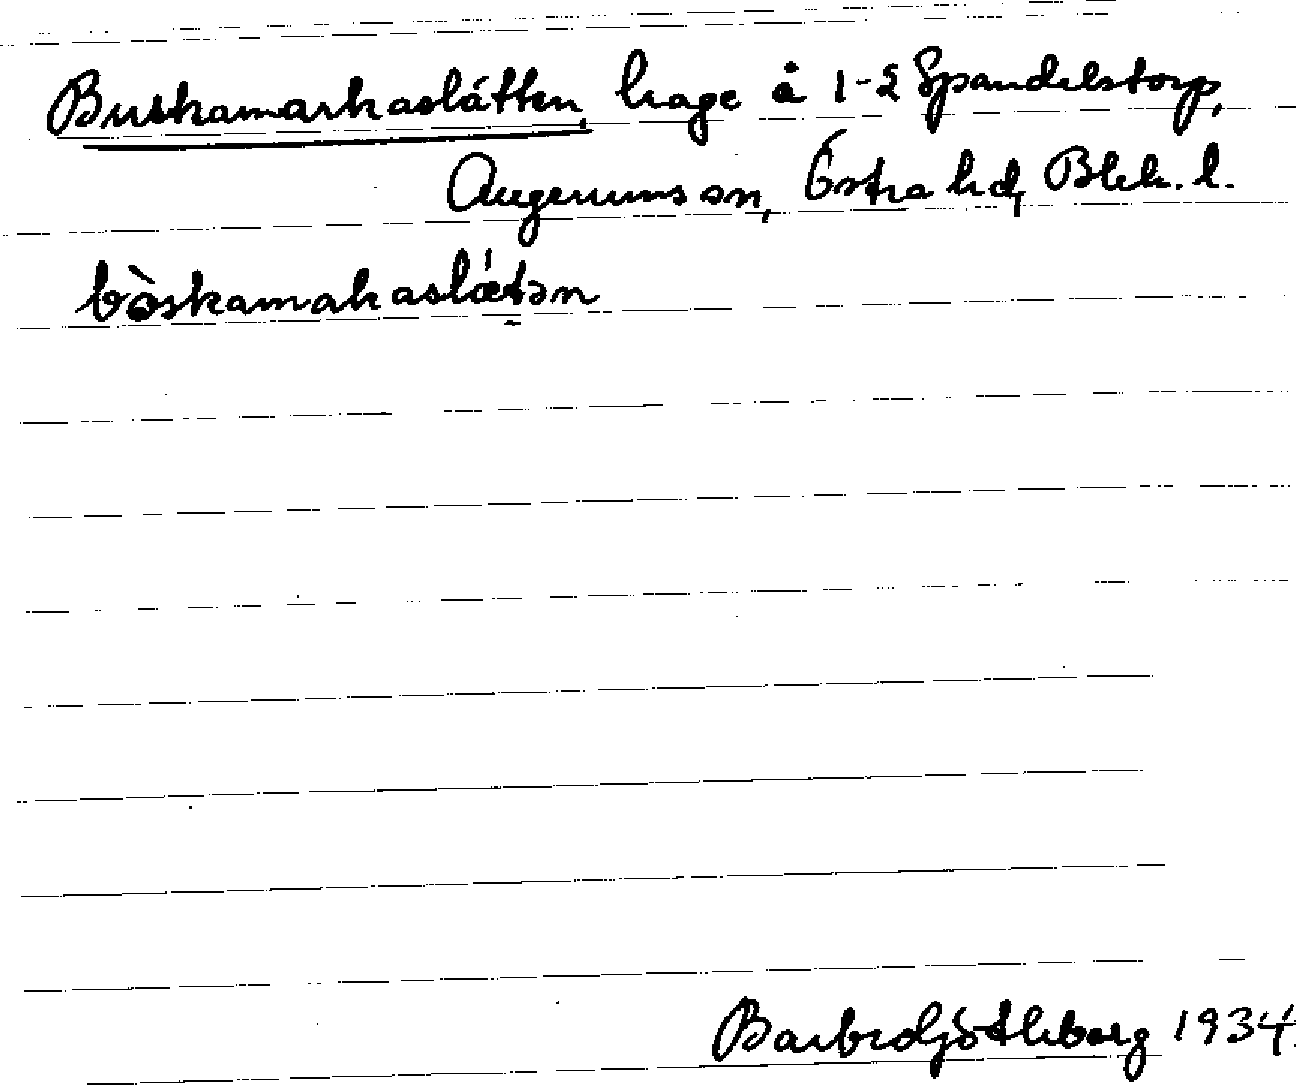 Buskamarkaslåtten, hage å 1-2 Spandelstorp,
Augerums sn, Östra hd, Blek. l.
bòskamakaslǽtən
Barbro Götleborg 1934.